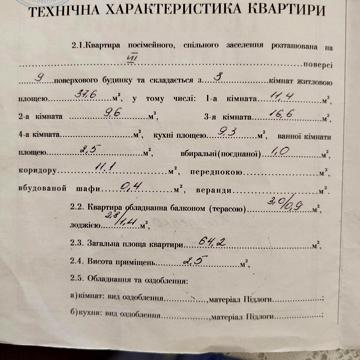 ТЕХНІЧНА ХАРАКТЕРИСТИКА КВАРТИРИ
2.1.Квартира посімейного, спільного заселення розташована на
VII поверсі
9 поверхового будинку та складається з 3 кімнат житловою
площею 37,6 м², у тому числі: 1-а кімната 11,4 м²,
2-а кімната 9,6 м², 3-я кімната 16,6 м²,
4-а кімната м², кухні площею 9,3 м², ванної кімнати
площею 2,5 м², вбиральні(поєднаної) 1,0 м²,
коридору 11,1 м², передпокою м²,
вбудованої шафи 0,4 м², веранди м².
2.2. Квартира обладнана балконом (терасою) 3,0/0,9 м²,
лоджією 2,8/1,4 м².
2.3. Загальна площа квартири 64,2 м².
2.4. Висота приміщень 2,5 м².
2.5. Обладнання та оздоблення:
а)кімнат: вид оздоблення ,матеріал Підлоги ;
б)кухні: вид оздоблення ,матеріал Підлоги ;